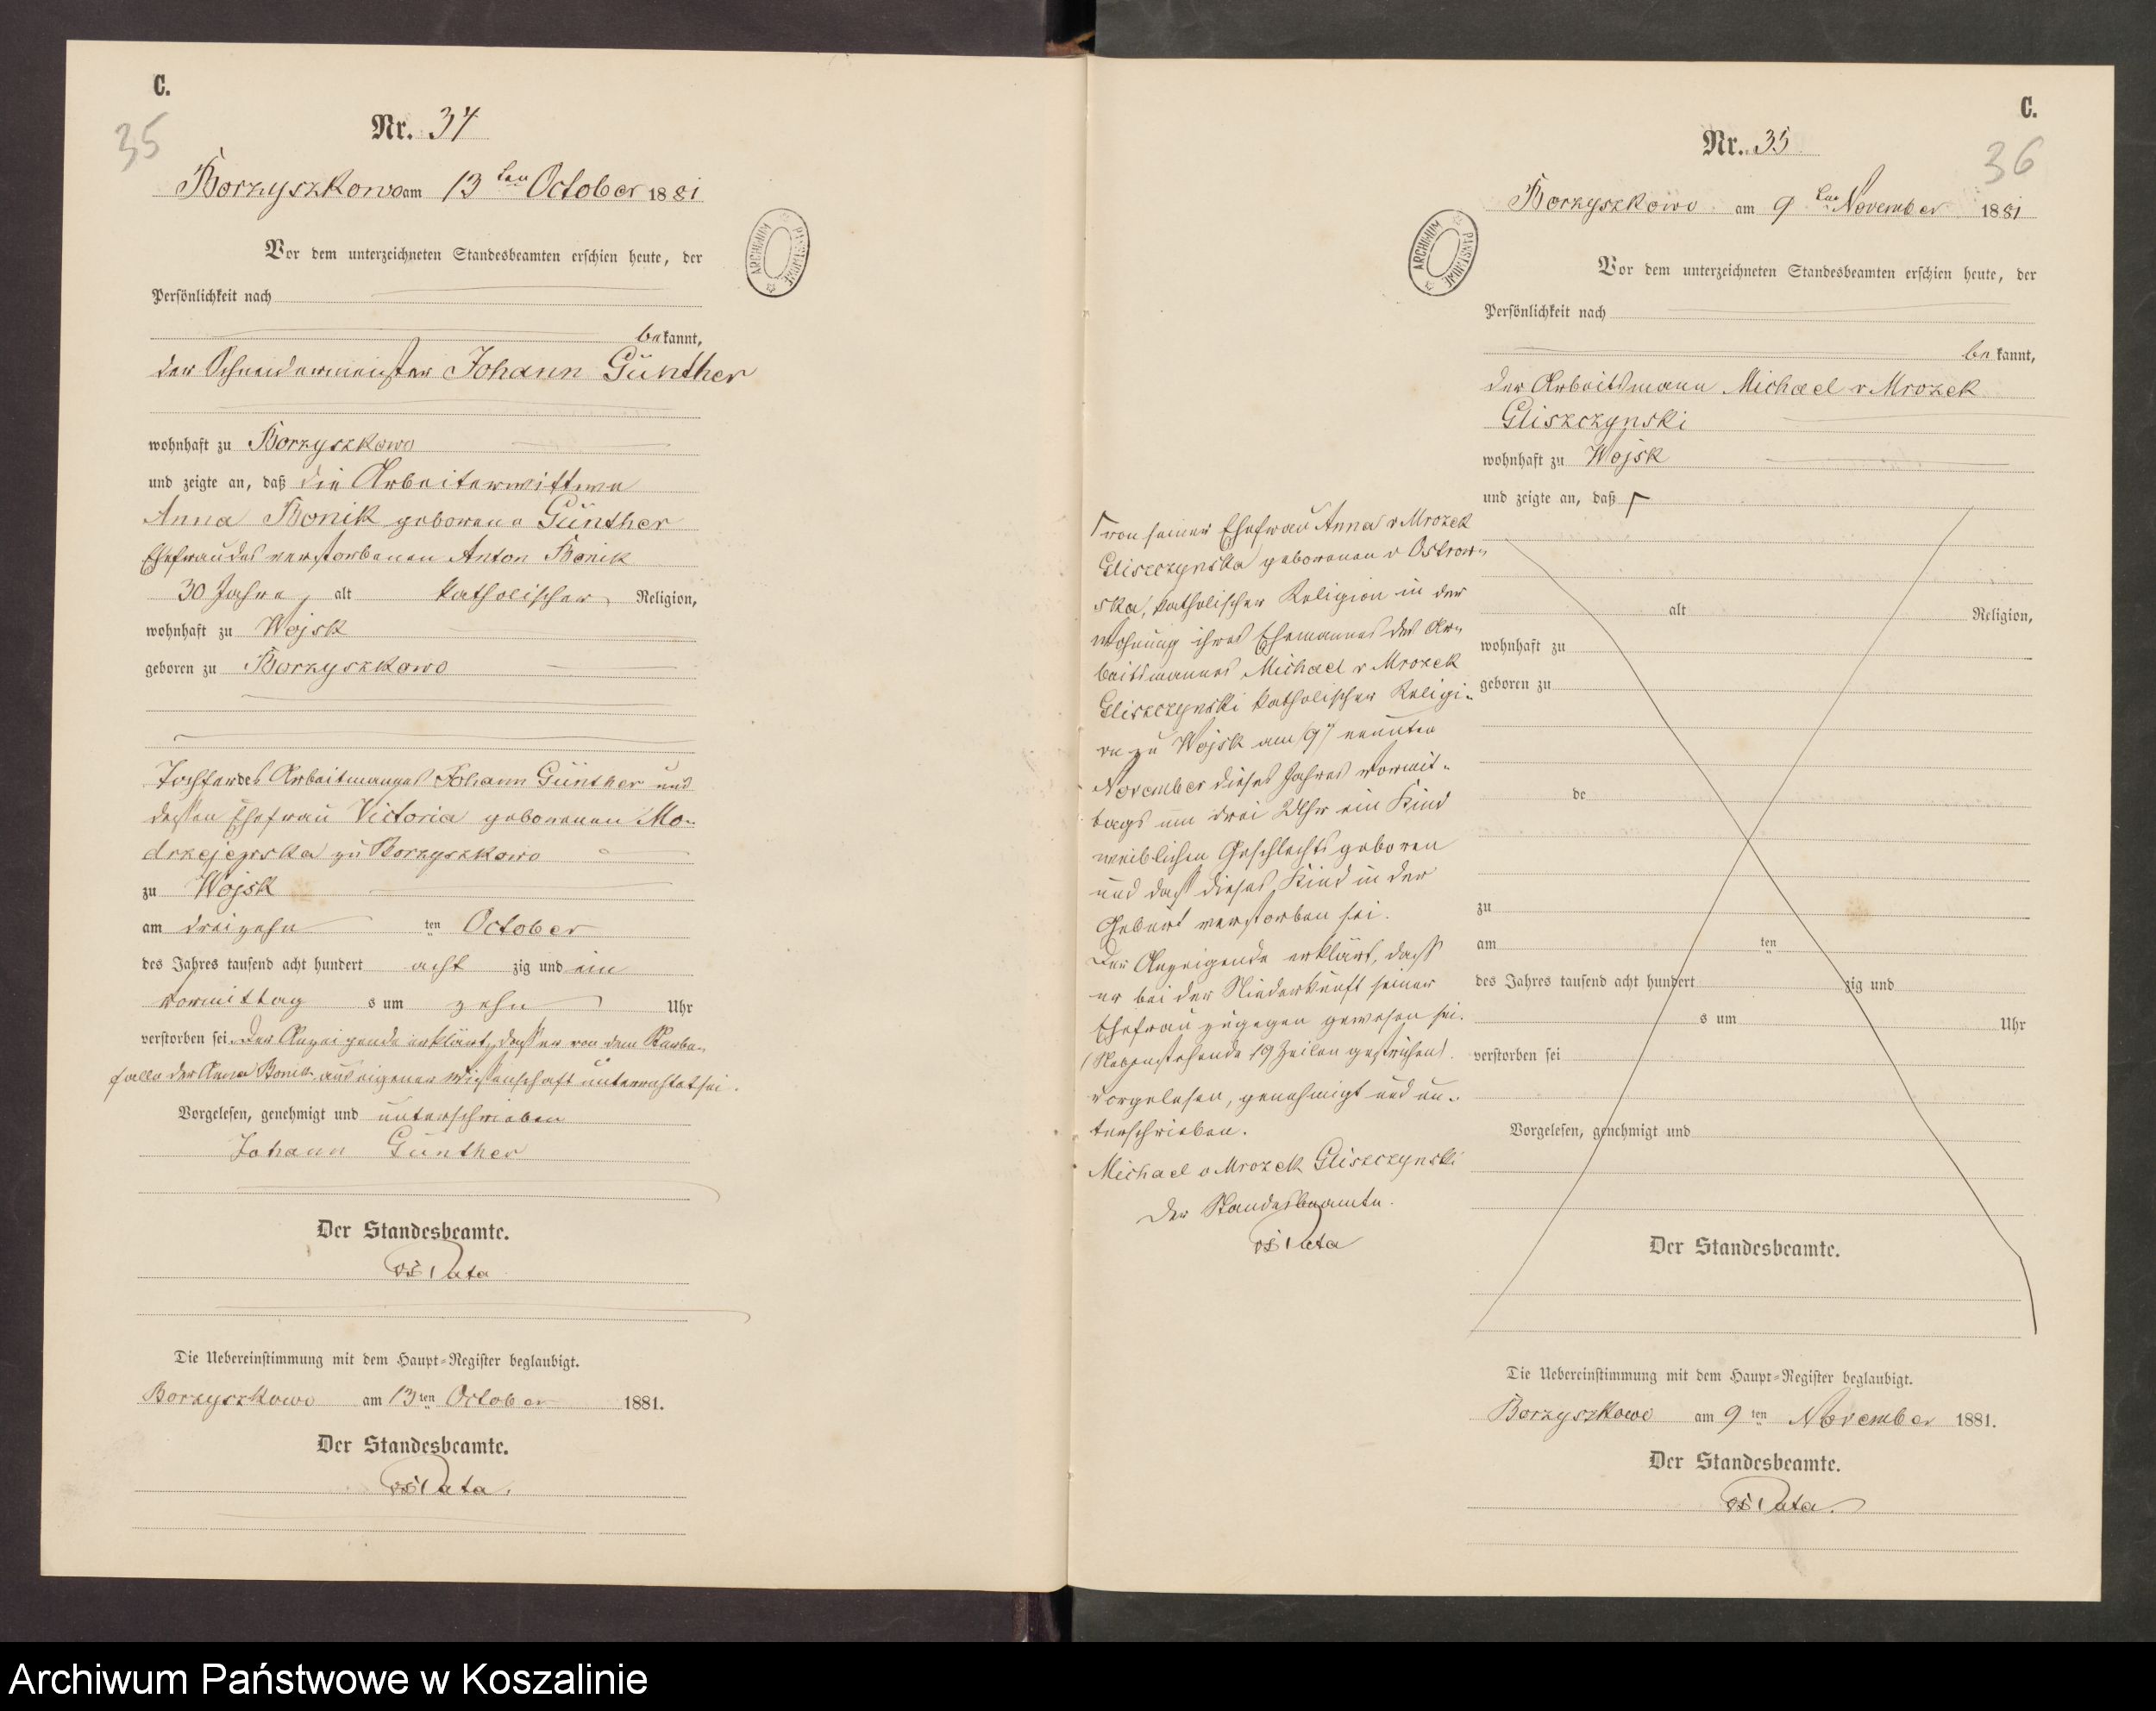 C.
35
Nr. 34
Borzyszkowo am 13 ten October 1881
Vor dem unterzeichneten Standesbeamten erschien heute, der
Persönlichkeit nach
bekannt,
der Schneidermeister Johann Günther
wohnhaft zu Borzyszkowo
und zeigte an, daß die Arbeiterwittwe
Anna Bonik geborene Günther
Ehefrau des verstorbenen Anton Bonik
30 Jahre, alt katholischer Religion,
wohnhaft zu Wojsk
geboren zu Borzyszkowo
Tochter des Arbeitmannes Johann Günther und
dessen Ehefrau Victoria geborenen Mo-
drzejewska zu Borzyszkowo
zu Wojsk
am dreizehn ten October
des Jahres tausend acht hundert acht zig und ein
Vormittag s um zehn Uhr
verstorben sei. Der Anzeigende erklärt, dass er von dem Sterbe-
falle der Anna Bonik aus eigener Wissenschaft unterrichtet sei.
Vorgelesen, genehmigt und unterschrieben
Johann Günther
Der Standesbeamte.
Die Uebereinstimmung mit dem Haupt-Register beglaubigt.
Borzyszkowo am 13 ten October 1881.
Der Standesbeamte.
ARCHIWUM PAŃSTWOWE
C.
36
Nr. 35
Borzyszkowo am 9 ten November 1881
Vor dem unterzeichneten Standesbeamten erschien heute, der
Persönlichkeit nach
bekannt,
der Arbeitsmann Michael v Mrozek
Gliszczynski
wohnhaft zu Wojsk
und zeigte an, daß
von seiner Ehefrau Anna v Mrozek
Gliszczynska geborenen v Ostrow-
ska, katholischer Religion in der
Wohnung ihres Ehemannes des Ar-
beitsmannes Michael v Mrozek
Gliszczynski katholischer Religi-
on zu Wojsk am /9/ neunten
November dieses Jahres Vormit-
tags um drei Uhr ein Kind
weiblichen Geschlechts geboren
und dass dieses Kind in der
Geburt verstorben sei.
Der Anzeigende erklärt, dass
er bei der Niederkunft seiner
Ehefrau zugegen gewesen sei.
(Nebenstehende 19 Zeilen gestrichen).
Vorgelesen, genehmigt und un-
terschrieben.
Michael v Mrozek Gliszczynski
Der Standesbeamte.
alt Religion,
wohnhaft zu
geboren zu
de
zu
am ten
des Jahres tausend acht hundert zig und
s um Uhr
verstorben sei
Vorgelesen, genehmigt und
Der Standesbeamte.
Die Uebereinstimmung mit dem Haupt-Register beglaubigt.
Borzyszkowo am 9 ten November 1881.
Der Standesbeamte.
ARCHIWUM PAŃSTWOWE
Archiwum Państwowe w Koszalinie